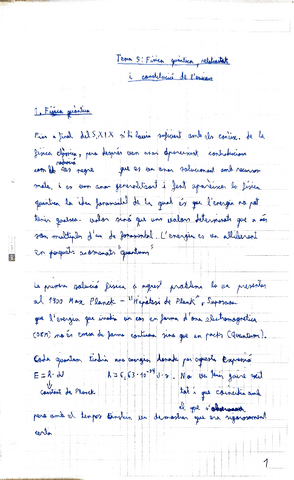 Tema 5: Física quàntica, relativitat
i constitució de l'univers
1. Física quàntica
Fins a final del S.XIX s'hi havia suficient amb els coneix. de la
física clàssica, pero després van anar apareixent contradiccions
com cos negre que es van anar solucionant
mala, i es van anar generalitzant i fent aparèixer la física
quàntica la idea fonamental de la qual és que l'energia no pot
tenir qualsev. valor sinó que uns valors determinats que a més
son múltiples d'un de fonamental. L'energia es va alliberant
En paquets anomenats "quantums"
La primera solució a aquest problema la va presentar
al 1900 Max Planck - "Hipòtesi de Plank", Suposava
que l'energia que irradia un cos en forma d'ona electromagnètica
(OEM) no és emesa de forma contínua sino que en packs (Quantum).
Cada quantum tindria una energia donada per aquesta Expressió
E = h · h = 6,63·10⁻³⁴ J·s. No va fer gaire
Constant de Planck tot i que coincidia amb
el que s'
pero amb el temps Einstein va demostrar que era rigorosament
certa
1